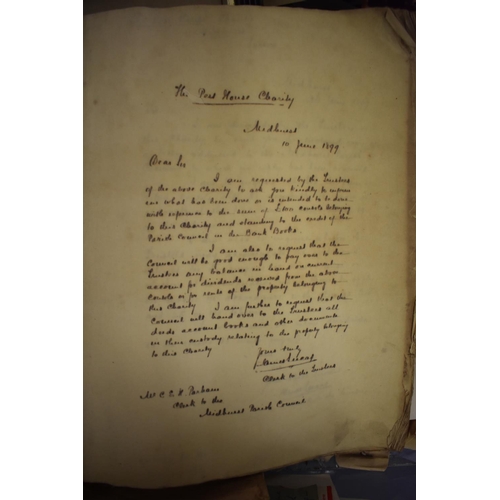 The Pest House Charity
Midhurst
June 1899
Dear Sir
I am requested by the Trustees
of the above Charity to ask you kindly to inform
me what has been done or is intended to be done
with reference to the sum of Consols belonging
to this Charity and standing to the credit of the
Parish Council in the Bank Books.
I am also to request that the
Council will be good enough to pay over to the
Trustees any balance in hand on current
account for dividends received from the above
Consols or for rents of the property belonging to
this Charity I am further to request that the
Council will hand over to the Trustees all
deeds account books and other documents
in their custody relating to the property belonging
to this Charity
Yours truly
Clerk to the Trustees
Mr C. E. H
Clerk to the
Midhurst Parish Council